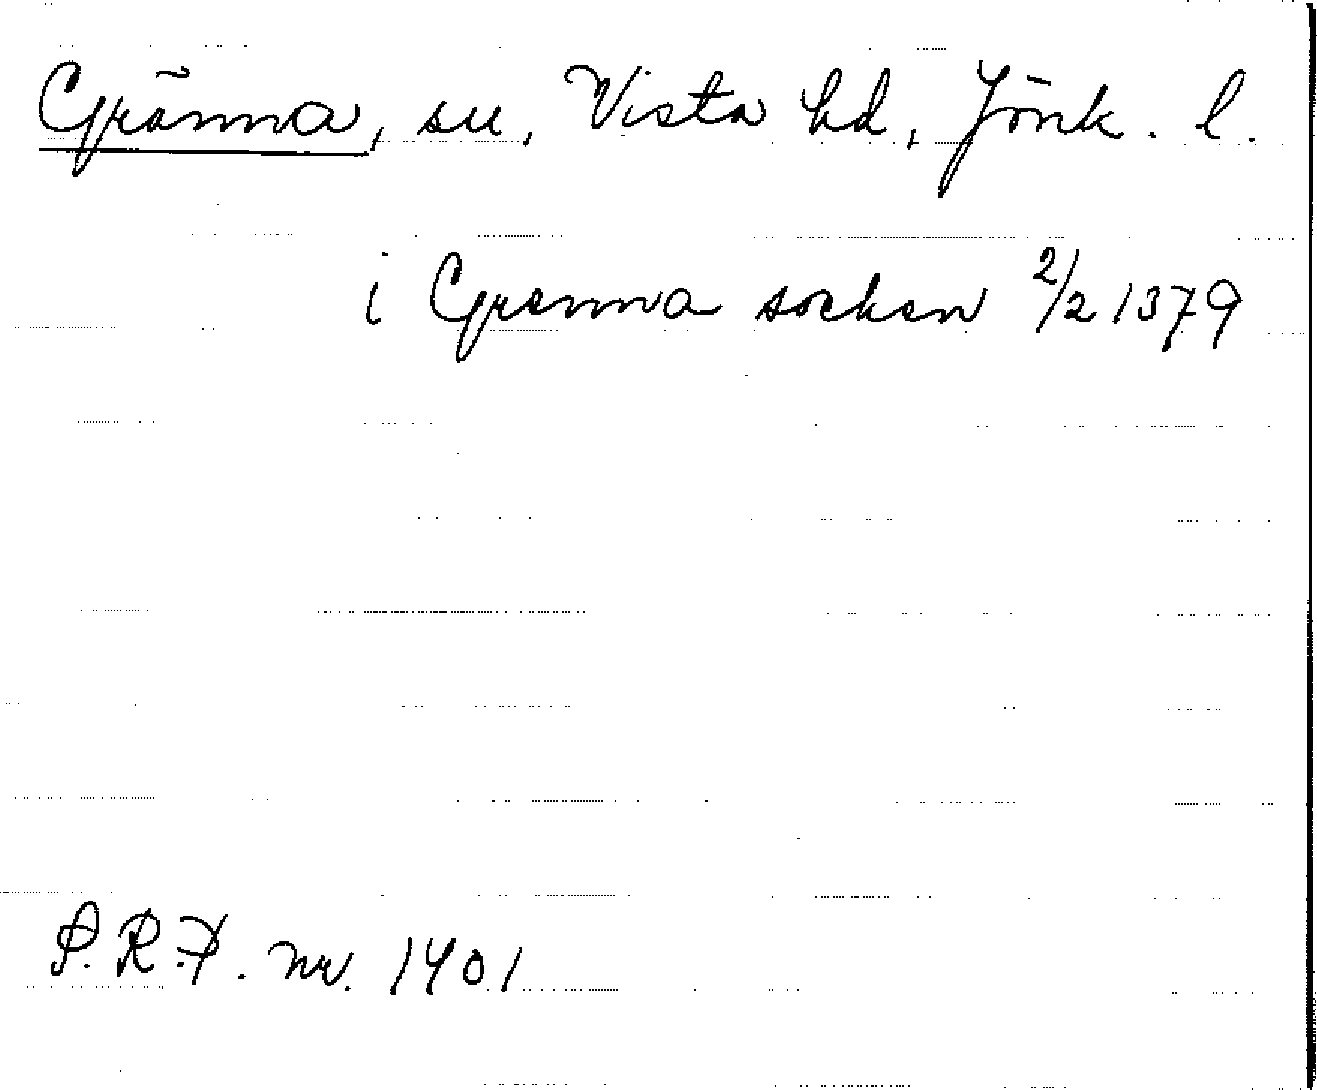 Gränna, sn, Vista hd, Jönk. l.
i Grenna socken 2/2 1379
S.R.P. nr. 1401